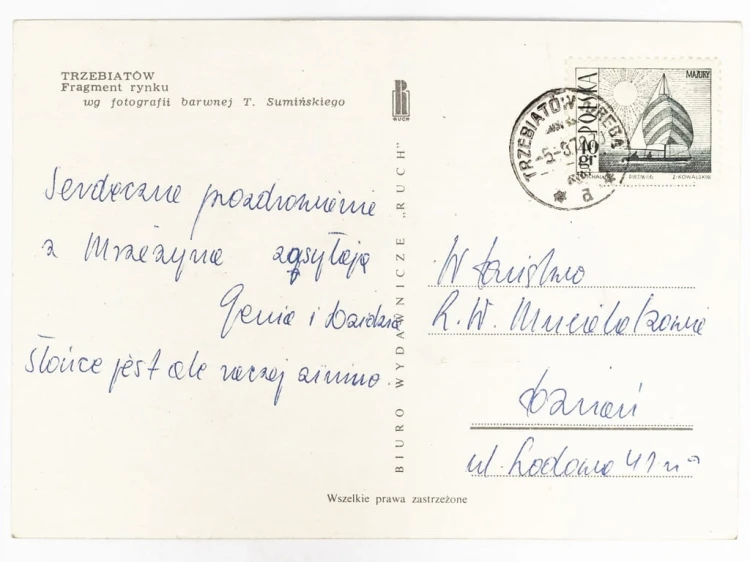 TRZEBIATÓW
Fragment rynku
wg fotografii barwnej T. Sumińskiego
RUCH
BIURO WYDAWNICZE „RUCH"
MAZURY
POLSKA
10 gr
Z. KOWALSKI
TRZEBIATÓW
Serdeczne pozdrowienia
z Mrzeżyna zasyłają
Genia i
Słońce jest ale raczej zimno.
R. W.
Poznań
ul. 41
Wszelkie prawa zastrzeżone